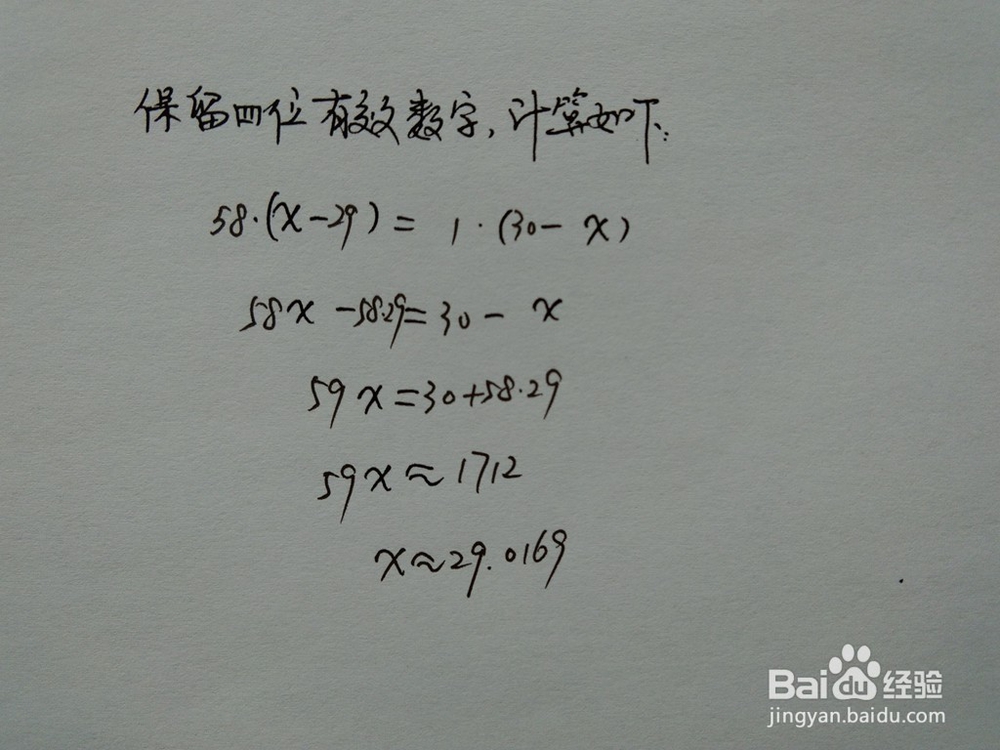 保留四位有效数字,计算如下:
58·(x-29)= 1·(30- x)
58x -58·29=30- x
59x=30+58·29
59x≈1712
x≈29.0169
Baidu经验
jingyan.baidu.com